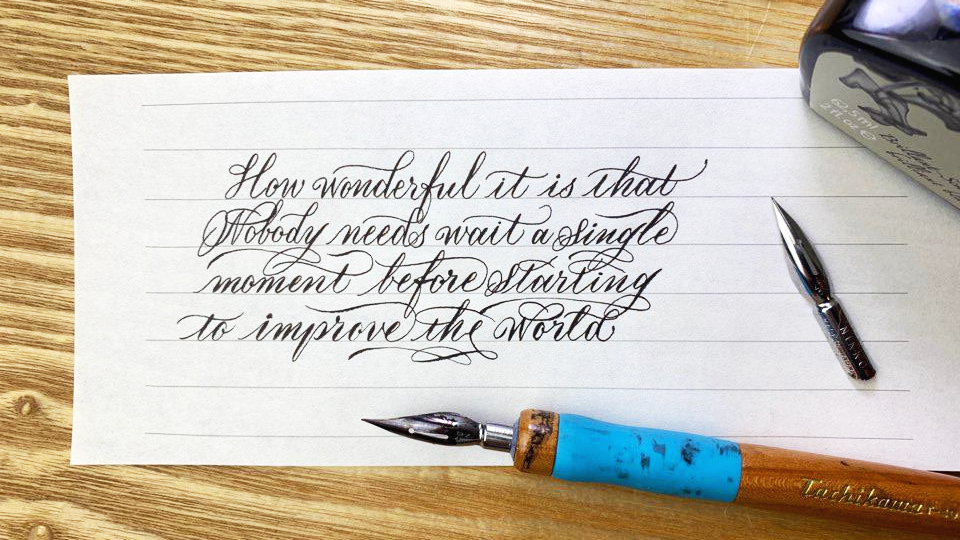 How wonderful it is that
Nobody needs wait a single
moment before starting
to improve the world
62.5ml
2 fl oz
NIKKO
Tachikawa